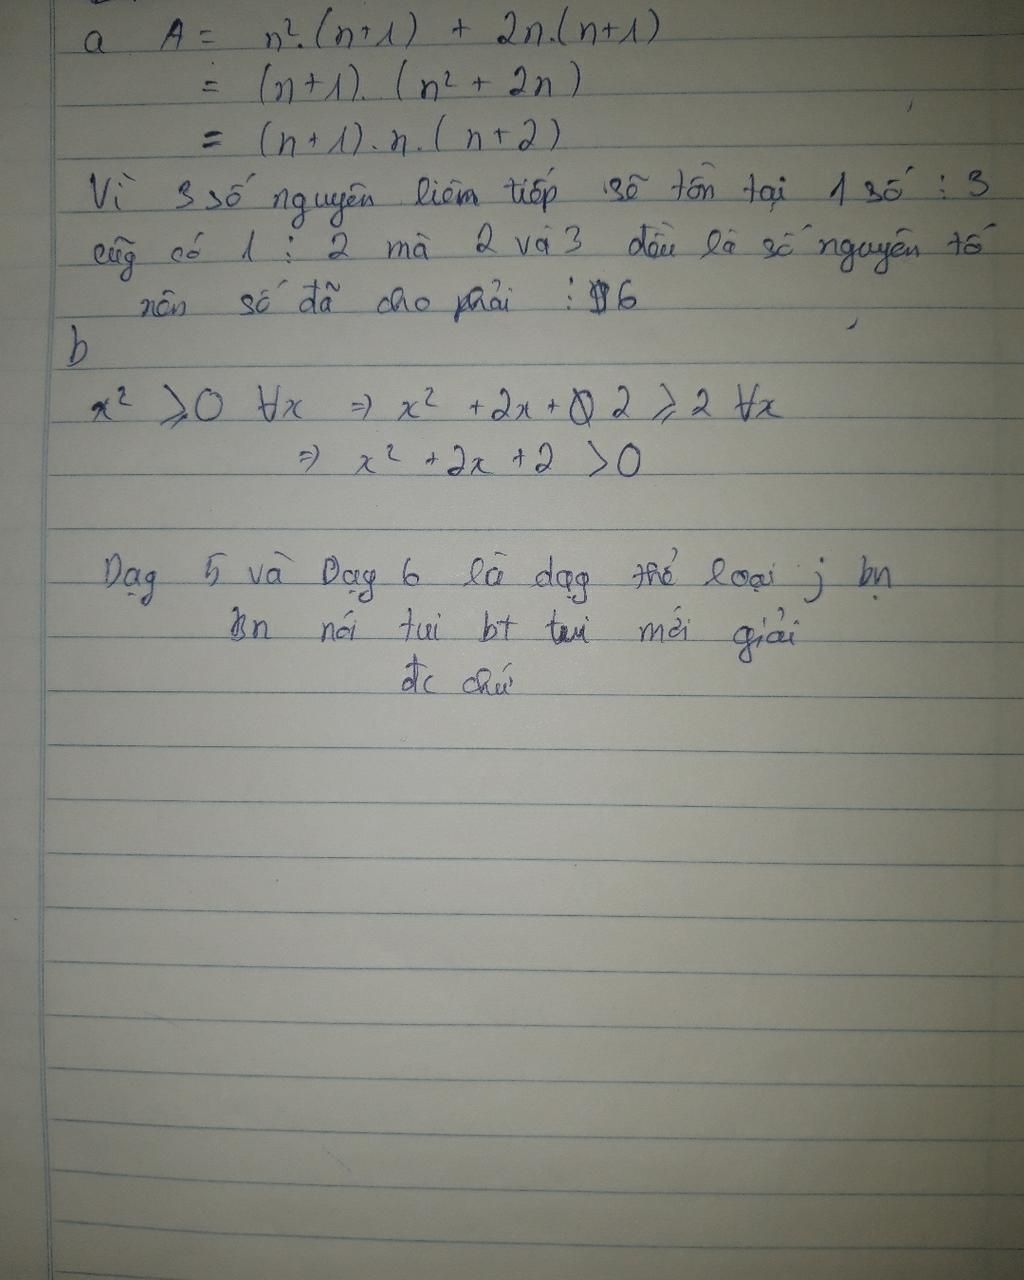 a A = n².(n+1) + 2n.(n+1)
= (n+1). (n² + 2n)
= (n+1).n.(n+2)
Vì 3 số nguyên liêm tiếp sẽ tồn tại 1 số ⋮ 3
cũg có 1 ⋮ 2 mà 2 và 3 đều là số nguyên tố
nên số đã cho phải ⋮ 6
b
x² ⩾ 0 ∀x ⇒ x² + 2x + 2 ⩾ 2 ∀x
⇒ x² + 2x + 2 > 0
Dạg 5 và Dạg 6 là dạg thể loại j bn
bn nói tui bt tui mới giải
đc chứ